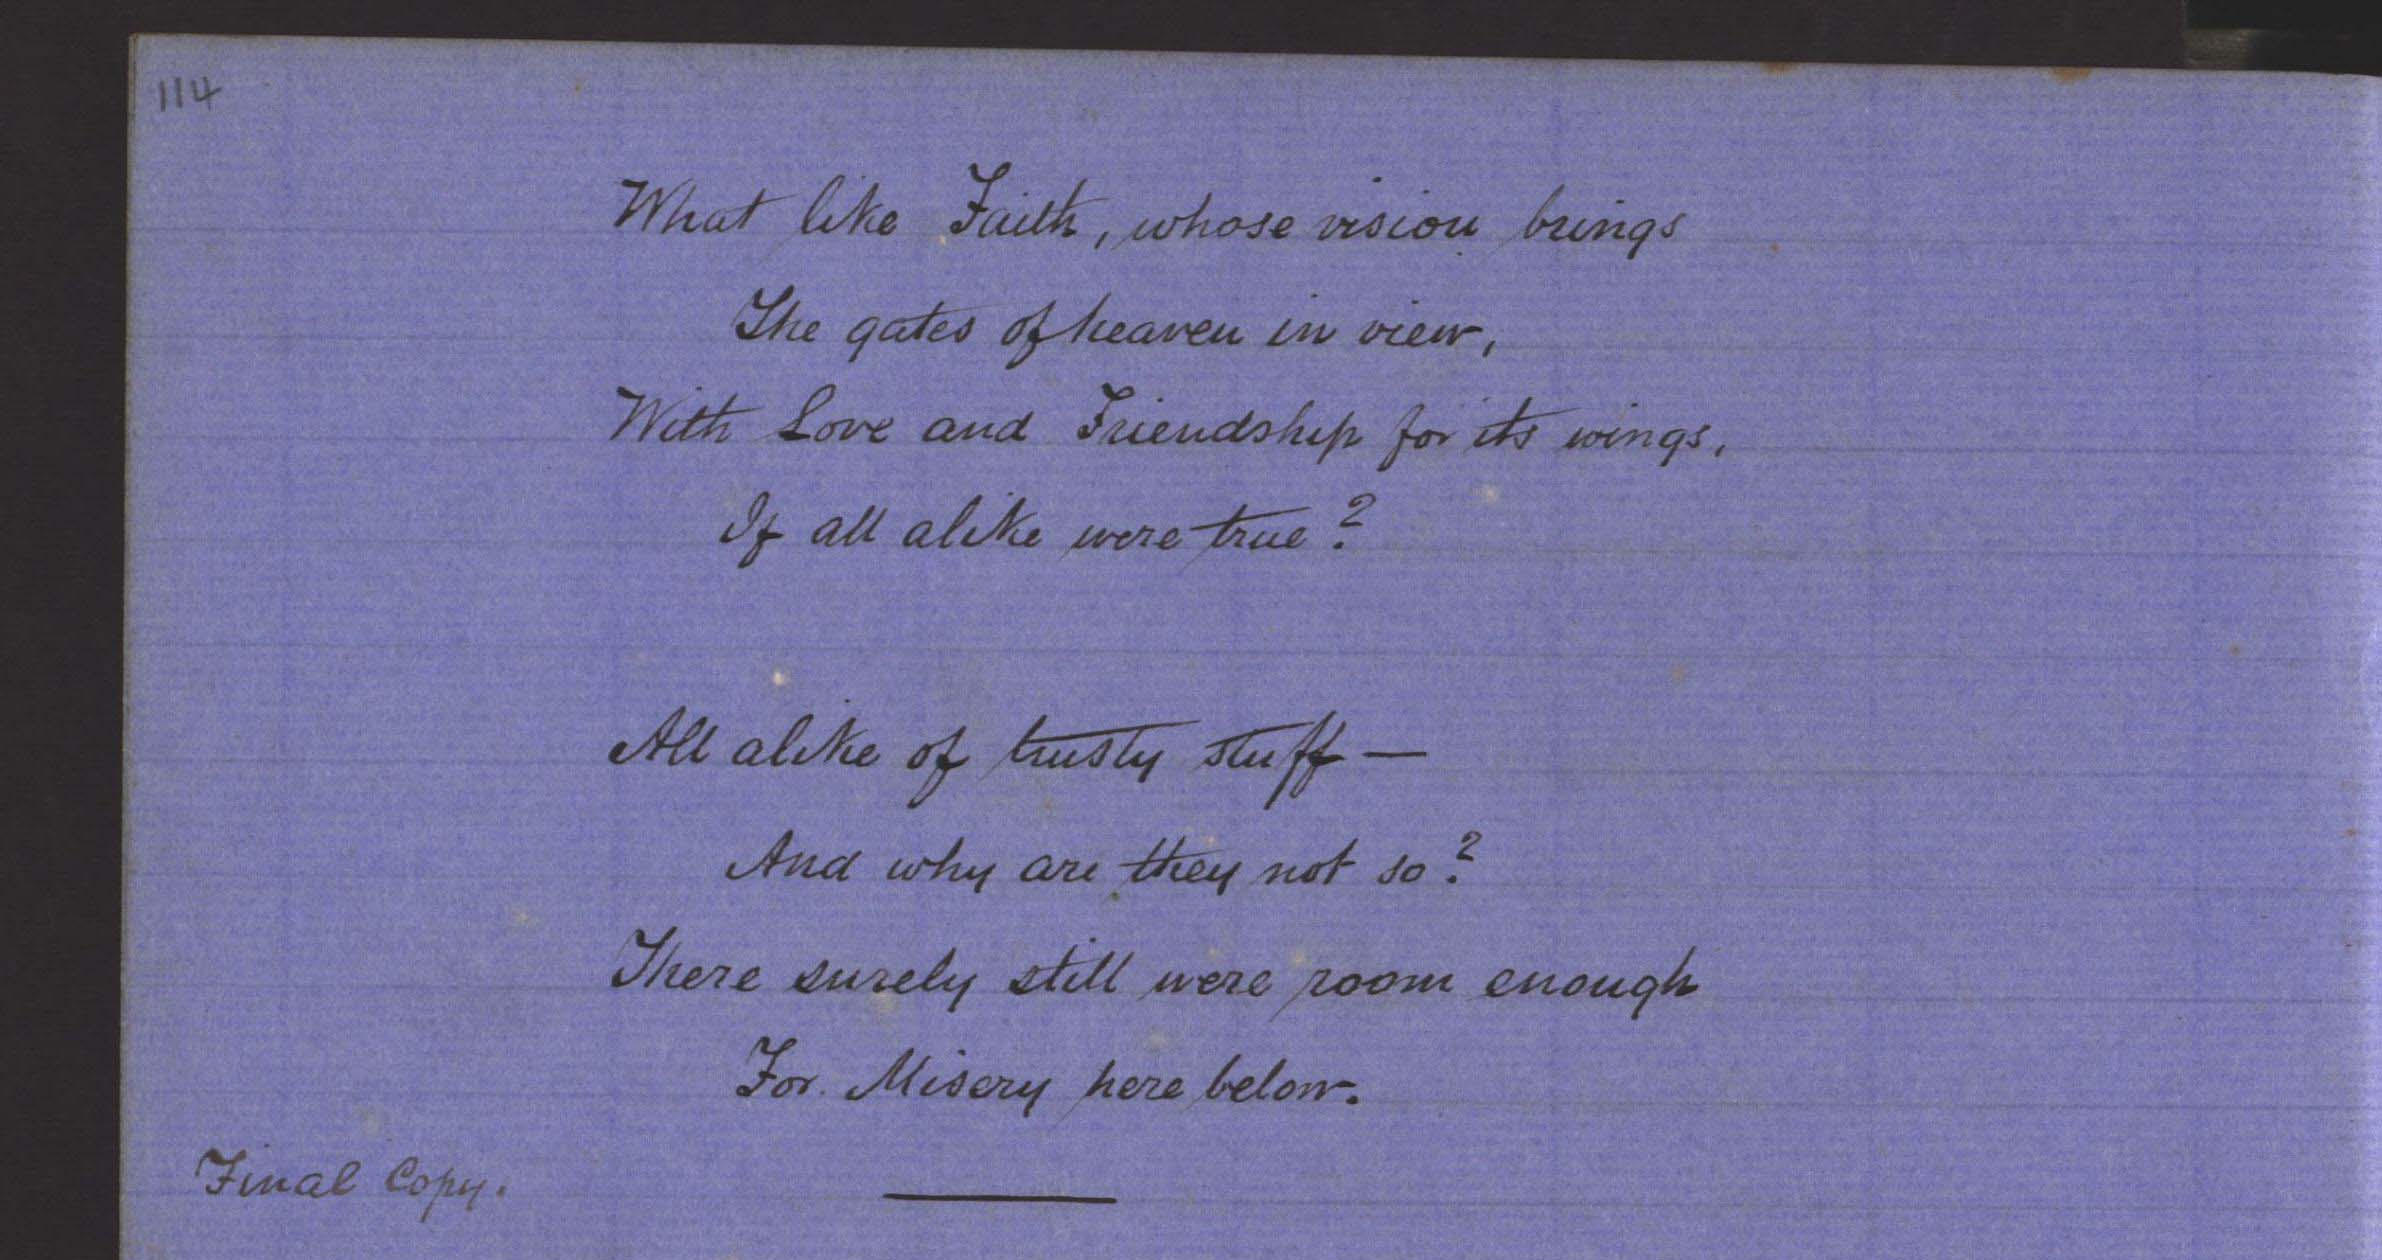 114
What like Faith, whose vision brings
The gates of heaven in view,
With Love and Friendship for its wings,
If all alike were true?
All alike of trusty stuff —
And why are they not so?
There surely still were room enough
For Misery here below.
Final Copy.